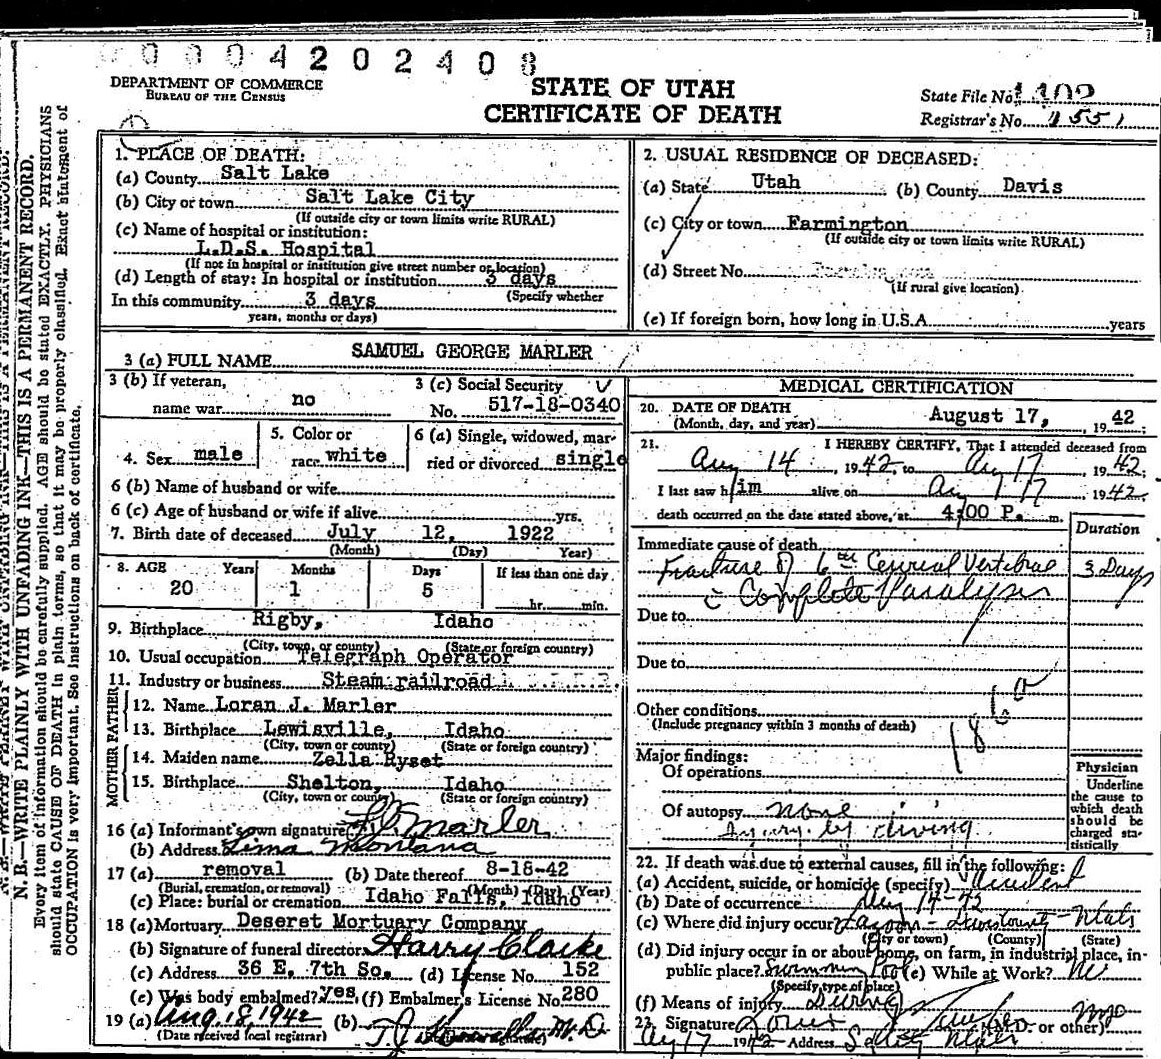 00004202408
DEPARTMENT OF COMMERCE
BUREAU OF THE CENSUS
STATE OF UTAH
CERTIFICATE OF DEATH
State File No. 1102
Registrar's No. 1551
N. B.—WRITE PLAINLY WITH UNFADING INK—THIS IS A PERMANENT RECORD.
Every item of information should be carefully supplied. AGE should be stated EXACTLY. PHYSICIANS
should state CAUSE OF DEATH in plain terms, so that it may be properly classified. Exact statement of
OCCUPATION is very important. See instructions on back of certificate.
1. PLACE OF DEATH:
(a) County Salt Lake
(b) City or town Salt Lake City
(If outside city or town limits write RURAL)
(c) Name of hospital or institution:
L.D.S. Hospital
(If not in hospital or institution give street number or location)
(d) Length of stay: In hospital or institution 3 days
(Specify whether
In this community 3 days
years, months or days)
2. USUAL RESIDENCE OF DECEASED:
(a) State Utah (b) County Davis
(c) City or town Farmington
(If outside city or town limits write RURAL)
(d) Street No.
(If rural give location)
(e) If foreign born, how long in U.S.A. years
3 (a) FULL NAME SAMUEL GEORGE MARLER
3 (b) If veteran,
name war no
3 (c) Social Security
No. 517-18-0340
4. Sex male
5. Color or
race white
6 (a) Single, widowed, mar-
ried or divorced single
6 (b) Name of husband or wife
6 (c) Age of husband or wife if alive yrs.
7. Birth date of deceased July 12, 1922
(Month) (Day) Year)
8. AGE Years Months Days If less than one day
20 1 5 hr. min.
9. Birthplace Rigby, Idaho
(City, town, or county) (State or foreign country)
10. Usual occupation Telegraph Operator
11. Industry or business Steam railroad
FATHER
12. Name Loran J. Marler
13. Birthplace Lewisville, Idaho
(City, town or county) (State or foreign country)
MOTHER
14. Maiden name Zella Ryset
15. Birthplace Shelton, Idaho
(City, town or county) (State or foreign country)
16 (a) Informant's own signature Marler
(b) Address Lima Montana
17 (a) removal (b) Date thereof 8-18-42
(Burial, cremation, or removal) (Month) (Day) (Year)
(c) Place: burial or cremation Idaho Falls, Idaho
18 (a) Mortuary Deseret Mortuary Company
(b) Signature of funeral director Harry Clarke
(c) Address 36 E. 7th So. (d) License No. 152
(e) Was body embalmed? yes (f) Embalmer's License No. 280
19 (a) Aug. 18, 1942 (b) M. D.
(Date received local registrar)
MEDICAL CERTIFICATION
20. DATE OF DEATH
(Month, day, and year) August 17, 1942
21. I HEREBY CERTIFY, That I attended deceased from
Aug 14, 1942, to Aug 17, 1942.
I last saw him alive on Aug 17, 1942.
death occurred on the date stated above, at 4:00 P. m.
Duration
Immediate cause of death
Fracture of 6th Cervical Vertebrae 3 Days
c Complete Paralysis
Due to
Due to
Other conditions
(Include pregnancy within 3 months of death)
Major findings:
Of operations
Of autopsy none
Injury by diving
Physician
Underline
the cause to
which death
should be
charged sta-
tistically
22. If death was due to external causes, fill in the following:
(a) Accident, suicide, or homicide (specify) Accident
(b) Date of occurrence Aug 14-42
(c) Where did injury occur? Lagoon - Davis County - Utah
(City or town) (County) (State)
(d) Did injury occur in or about home, on farm, in industrial place, in
public place? Swimming Pool (e) While at Work? No
(Specify type of place)
(f) Means of injury Diving
23. Signature (M.D. or other)
Aug 17 1942 Address